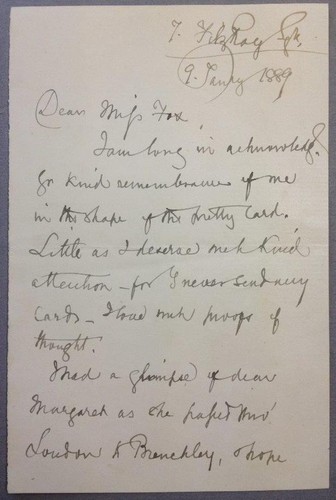 7. Fitzroy Sqre.
9. Jany 1889
Dear Miss Fox,
I am long in acknowledg.g
yr kind remembrance of me
in the shape of the pretty Card.
Little as I deserve such kind
attention – for I never send any
Cards – I love such proofs of
thought.
I had a glimpse of dear
Margaret as she passed thro'
London to Brenchley, & hope